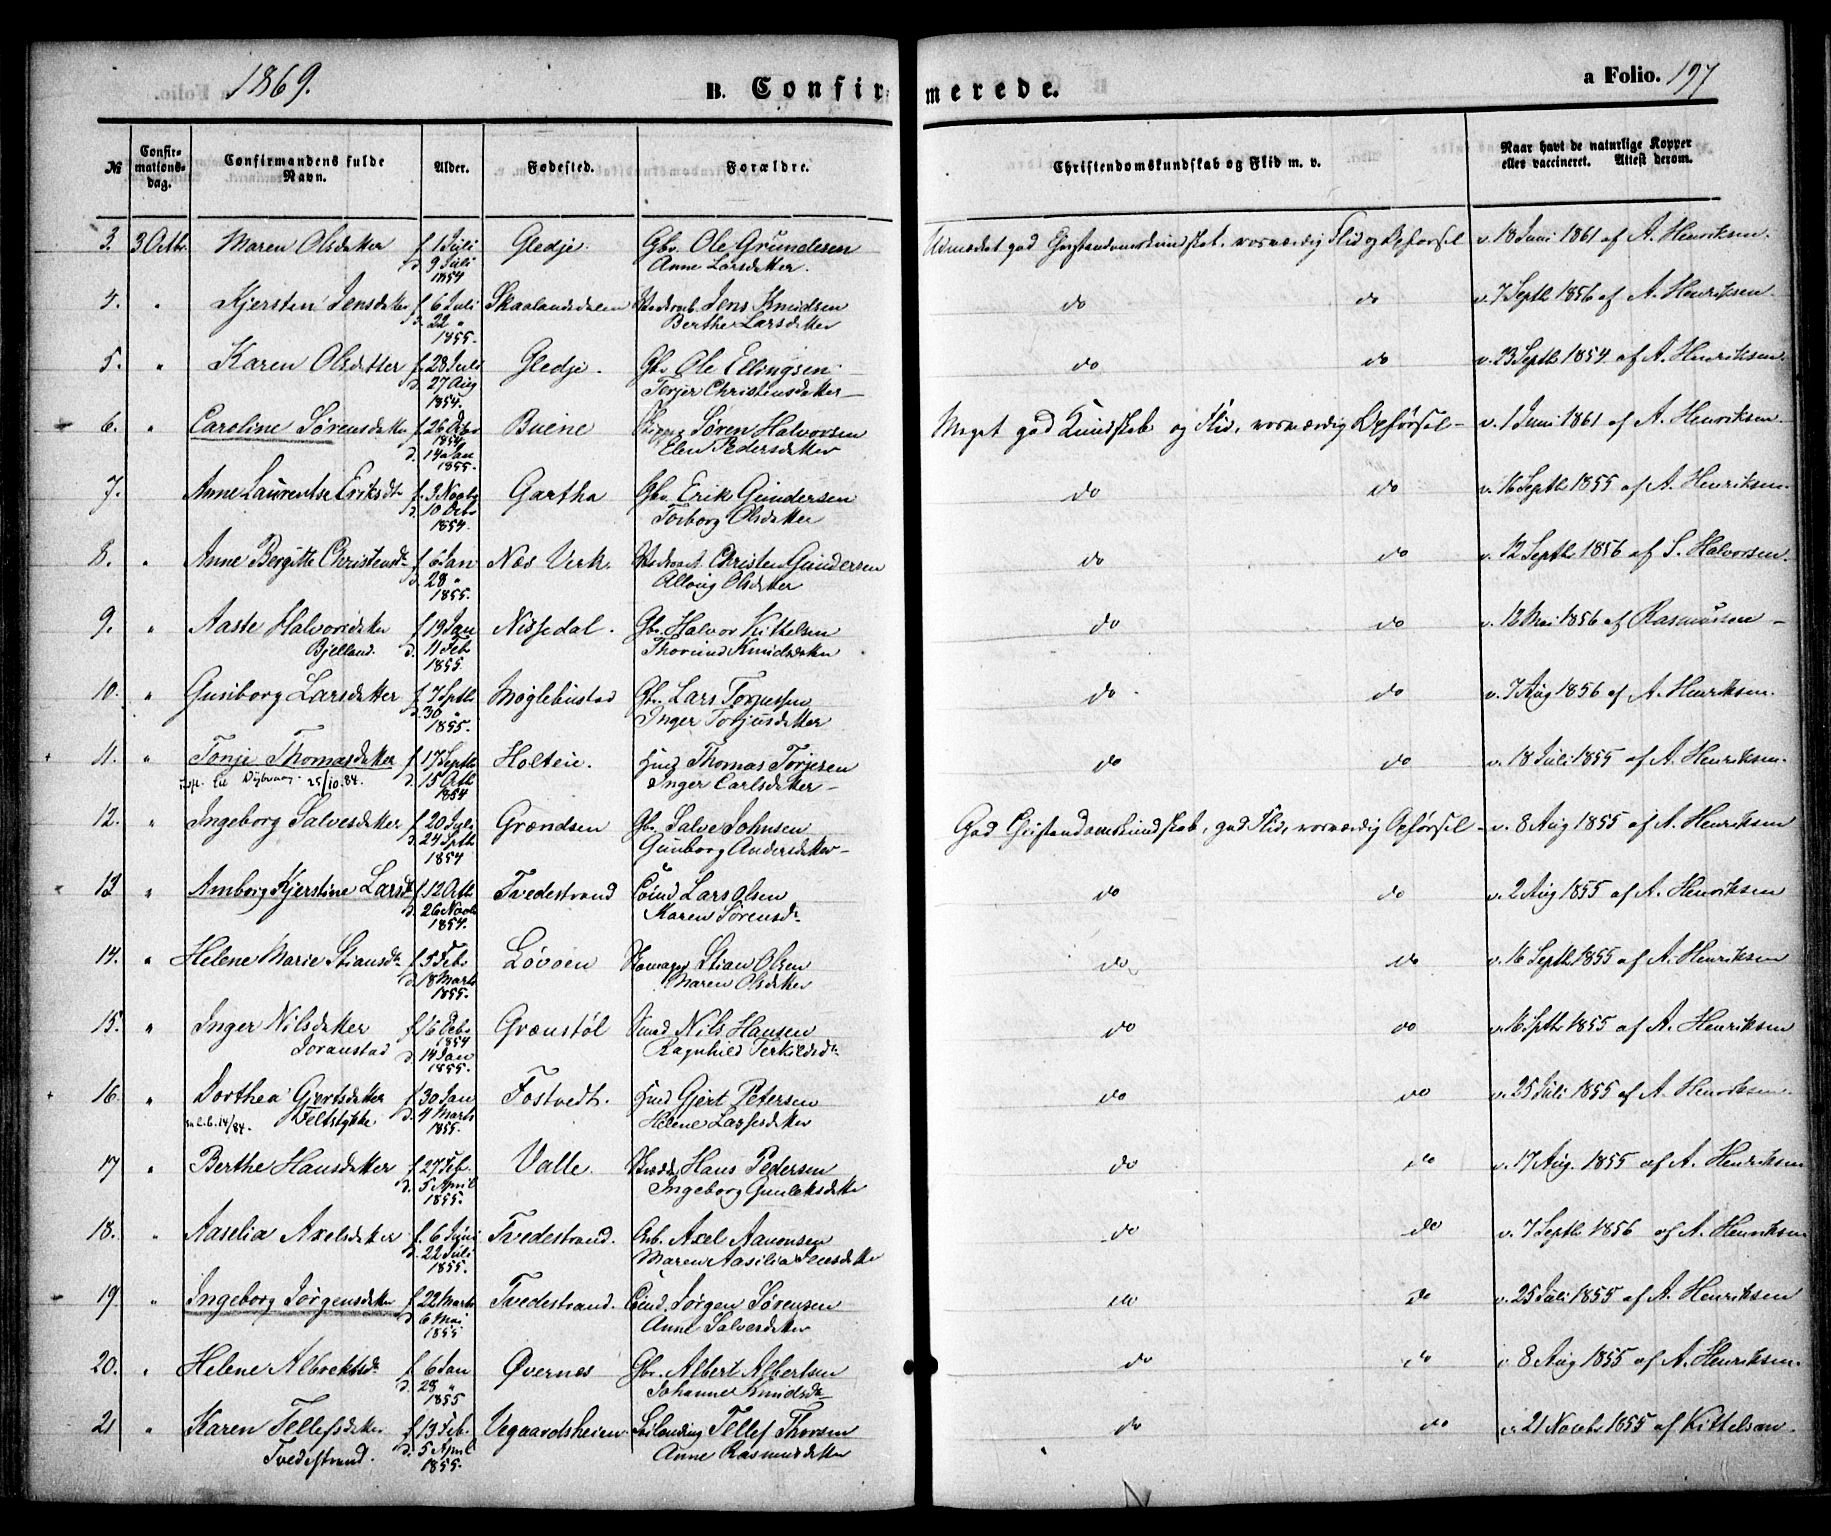 1869.
B. Confirmerede.
a Folio. 197
№
Confirmationsdag.
Confirmandens fulde Navn.
Alder.
Fødested.
Forældre.
Christendomskundskab og Flid m. v.
Naar havt de naturlige Kopper eller vaccineret. Attest derom.
3. 3 Octbr. Maren Olsdatter f. 1 Juli Gledje. Gbr. Ole Gundersen god Christendomskundskab, rosværdig Flid og Opførsel v. 18 Juni 1861 af A. Henriksen.
d. 9 Juli Anne Larsdatter.
1854
4. " Kjersten Jensdatter f. 6 Juli Skaalandsdalen Jens Knudsen do do v. 7 Septb 1856 af A. Henriksen.
d. 22 " Berthe Larsdatter
1855.
5. " Karen Olsdatter f. 28 Juli Gledje. Gbr Ole Ellingsen do do v. 23 Septb 1854 af A. Henriksen.
d. 27 Aug Terjer Christensdatter
1854.
6. " Caroline Sørensdatter f. 26 Decbr Buene Søren Halvorsen Meget god Kundskab og Flid, rosværdig Opførsel v. 1 Juni 1861 af A. Henriksen.
1854
d. 14 Jan Elen Pedersdatter
1855.
7. Anne Laurentse Eriksdtr f. 3 Novbr Gartha Gbr. Erik Gundersen do do v. 16 Septb 1855 af A. Henriksen.
d. 10 Decbr Torborg Olsdatter
1854.
8. " Anne Bergitte Christensdtr f. 6 Jan Næs Verk. Christen Gundersen do do v. 12 Septb 1856 af S. Halvorsen.
d. 28 " Olsdatter
1855.
9. " Aaste Halvorsdatter f. 19 Jan Nissedal. Gbr. Halvor Kittelsen do do v. 12 Mai 1856 af Rasmussen
Bjelland. d. 11 Feb Thorund Knudsdatter
1855.
10. " Gunborg Larsdatter f. 7 Septb Møglebustad Gbr. Lars Torjussen do do v. 7 Aug 1856 af A. Henriksen.
d. 30 " Inger Torjusdatter
1855.
11. " Tonje Thomasdatter f. 17 Septb Holteie. Huusd Thomas Torjesen do do v. 18 Juli 1855 af A. Henriksen.
til Dybvaag 25/10.84. d. 15 Octb Inger Carlsdatter
1854
12. " Ingeborg Salvesdatter f. 20 Juli Grændsen Gbr. Salve Johnsen God Christendomskundskab, god Flid, rosværdig Opførsel v. 8 Aug 1855 af A. Henriksen
d. 24 Septb Gunborg Andersdatter
1854
13 " Amborg Kjerstine Larsdtr f. 12 Octb Tvedestrand Lars Olsen do do v. 2 Aug 1855 af A. Henriksen
d. 26 Novb Maren Sørensdtr
1854.
14. " Helene Marie Stiansdtr f. 5 Feb Løvøen Stian Olsen do do v. 16 Septb 1855 af A. Henriksen
d. 18 Marts Maren Olsdatter
1855.
15. " Inger Nilsdatter f. 16 Decbr Grænstøl Nils Hansen do do v. 16 Septb 1855 af A. Henriksen
1854
Joranstad d. 14 Jan Ragnhild Terkildsdtr
1855.
16. " Dorthea Gjertsdatter f. 30 Jan Fostvedt. Huusd Gjert Petersen do do v. 25 Juli 1855 af A. Henriksen.
14/84. Feltstykke d. 4 Marts Helene Lassesdatter
1855.
17 " Berthe Hansdatter f. 27 Feb. Valle. Hans Pedersen do do v. 17 Aug. 1855 af A. Henriksen
d. 5 April Ingeborg Gunleksdatter
1855.
18. " Aaselia Axelsdatter f. 6 Juni Tvedestrand. Arb. Axel Aanonsen do do v. 7 Septb 1856 af A. Henriksen
d. 22 Juli Maren Aasilia Jensdatter
1855.
19 " Ingeborg Jørgensdatter f. 22 Marts Tvedestrand. Jørgen Sørensen do do v. 25 Juli 1855 af A. Henriksen
d. 6 Mai Anne Salvesdatter
1855
20. " Helene Albrektsdtr f. 6 Jan Øvernes Gbr. Albert Albertsen do do v. 8 Aug 1855 af A. Henriksen.
d. 28 " Johanne Knudsdtr
1855
21 " Karen Tellefsdatter f. 13 Feb. Vegaardsheien. Tellef Thorsen do do v. 21 Novbr 1855 af Kittelsen.
Tvedestrand. d. 5 April Anne Rasmusdatter
1855.